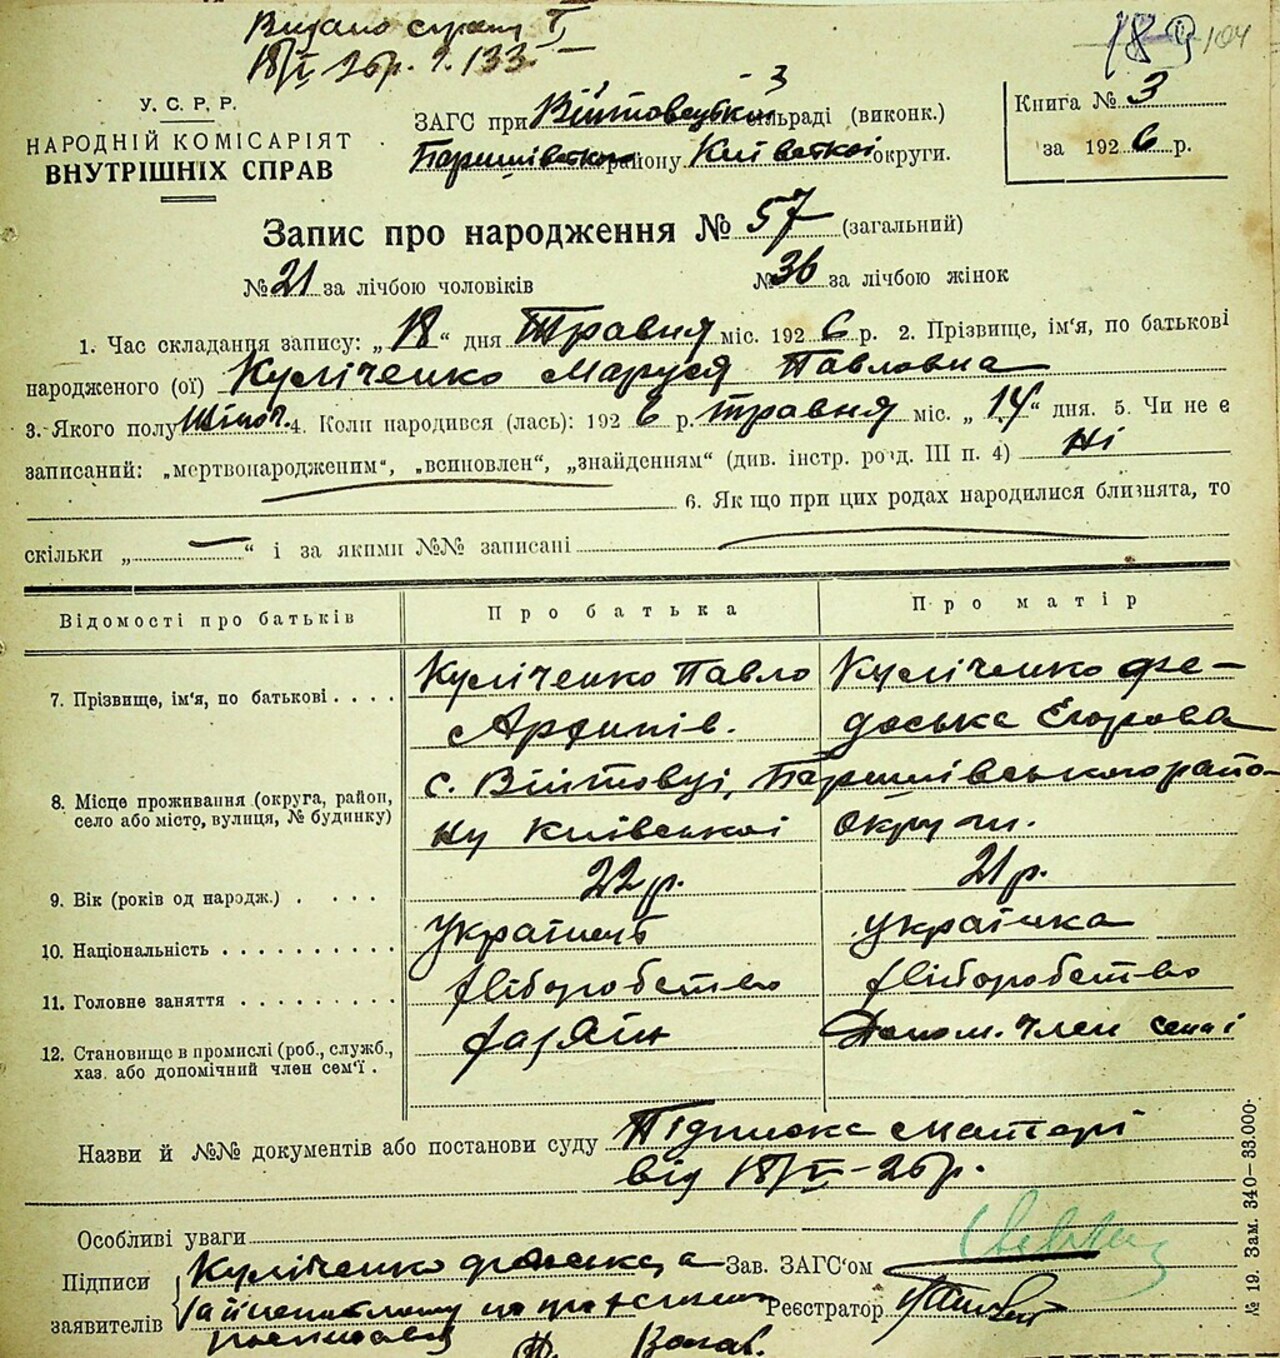 Видано справку
18/V 26р. 133
18
104
У. С. Р. Р.
НАРОДНІЙ КОМІСАРІЯТ
ВНУТРІШНІХ СПРАВ
ЗАГС при Війтовецькій сільраді (виконк.)
Баришівського району Київської округи.
Книга № 3
за 1926 р.
Запис про народження № 57 (загальний)
№ 21 за лічбою чоловіків № 36 за лічбою жінок
1. Час складання запису: „18" дня Травня міс. 1926 р. 2. Прізвище, ім'я, по батькові
народженого (ої) Куліченко Маруся Павловна
3. Якого полу жіноч. 4. Коли народився (лась): 1926 р. травня міс. „14" дня. 5. Чи не є
записаний: „мертвонародженим", „всиновлен", „знайденням" (див. інстр. розд. III п. 4) Ні
6. Як що при цих родах народилися близнята, то
скільки „ — " і за якими №№ записані
Відомості про батьків Про батька Про матір
7. Прізвище, ім'я, по батькові . . . . Куліченко Павло Куліченко Фе-
Архипів. доська Егорова
8. Місце проживання (округа, район, село або місто, вулиця, № будинку) с. Війтовці, Баришівського райо-
ну Київської округи.
9. Вік (років од народж.) . . . . 22 р. 21 р.
10. Національність . . . . . . . . . . Українець українка
11. Головне заняття . . . . . . . . . хліборобство хліборобство
12. Становище в промислі (роб., служб., хаз. або допомічний член сем'ї . хазяїн Допом. член семї
Назви й №№ документів або постанови суду Підписка матері
від 18/V-26р.
Особливі уваги
Підписи заявителів Куліченко Федоська, а
за неписьменну по проханню
росписався
Зав. ЗАГС'ом
Реєстратор
№ 19. Зам. 340—33.000.